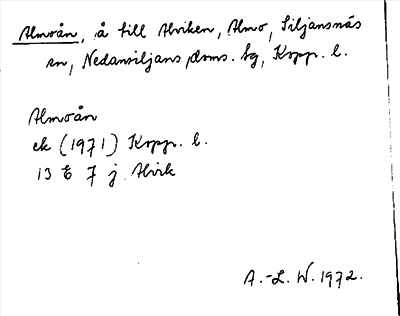 Almoån, å till Alviken, Almo, Siljansnäs
sn, Nedansiljans doms. hg, Kopp. l.
Almoån
ek (1971) Kopp. l.
13 E 7 j Alvik
A.-L. W. 1972.